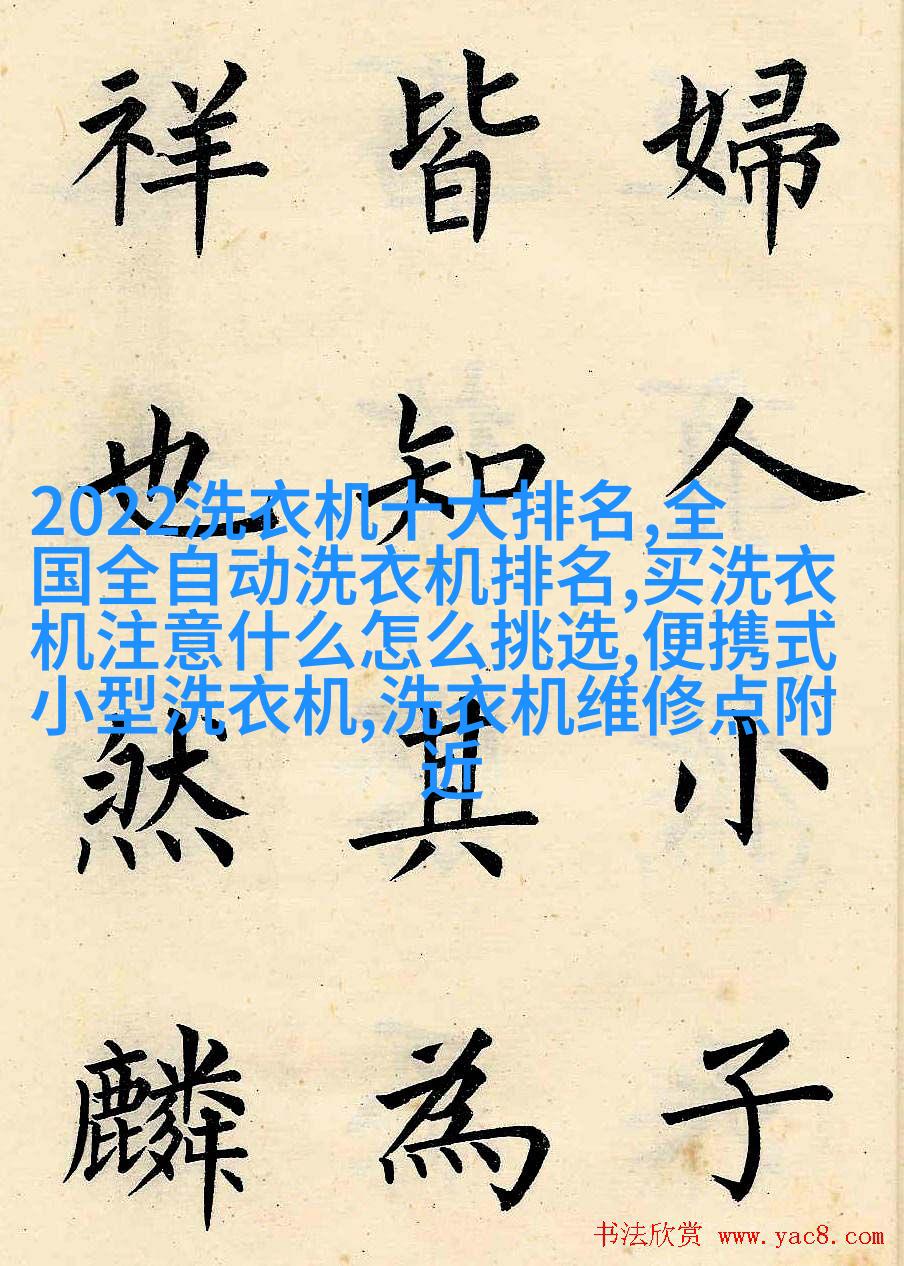 婦人小子
皆知其為
祥也然麟
2022洗衣机十大排名,全
国全自动洗衣机排名,买洗衣
机注意什么怎么挑选,便携式
小型洗衣机,洗衣机维修点附
近
书法欣赏 www.yac8.com